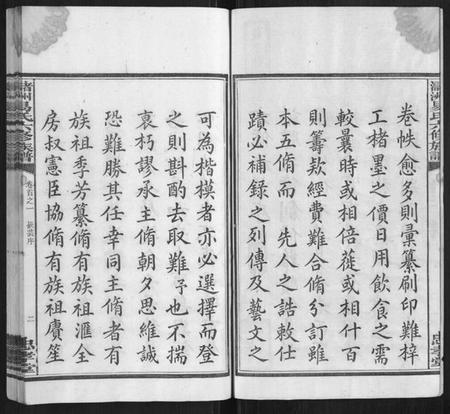 卷帙愈多則彙纂刷印難梓
工楮墨之價日用飲食之需
較曩時或相倍蓰或相什百
則籌款經費難合脩分訂雖
本五脩而　先人之誥敕仕
蹟必補錄之列傳及藝文之
可為楷模者亦必選擇而登
之則斟酌去取難予也不揣
衰朽謬承主脩朝夕思維誠
恐難勝其任幸同主脩者有
族祖季芳纂脩有族祖滙全
房叔憲臣協脩有族祖賡笙
卷首之一
二
忠孝堂